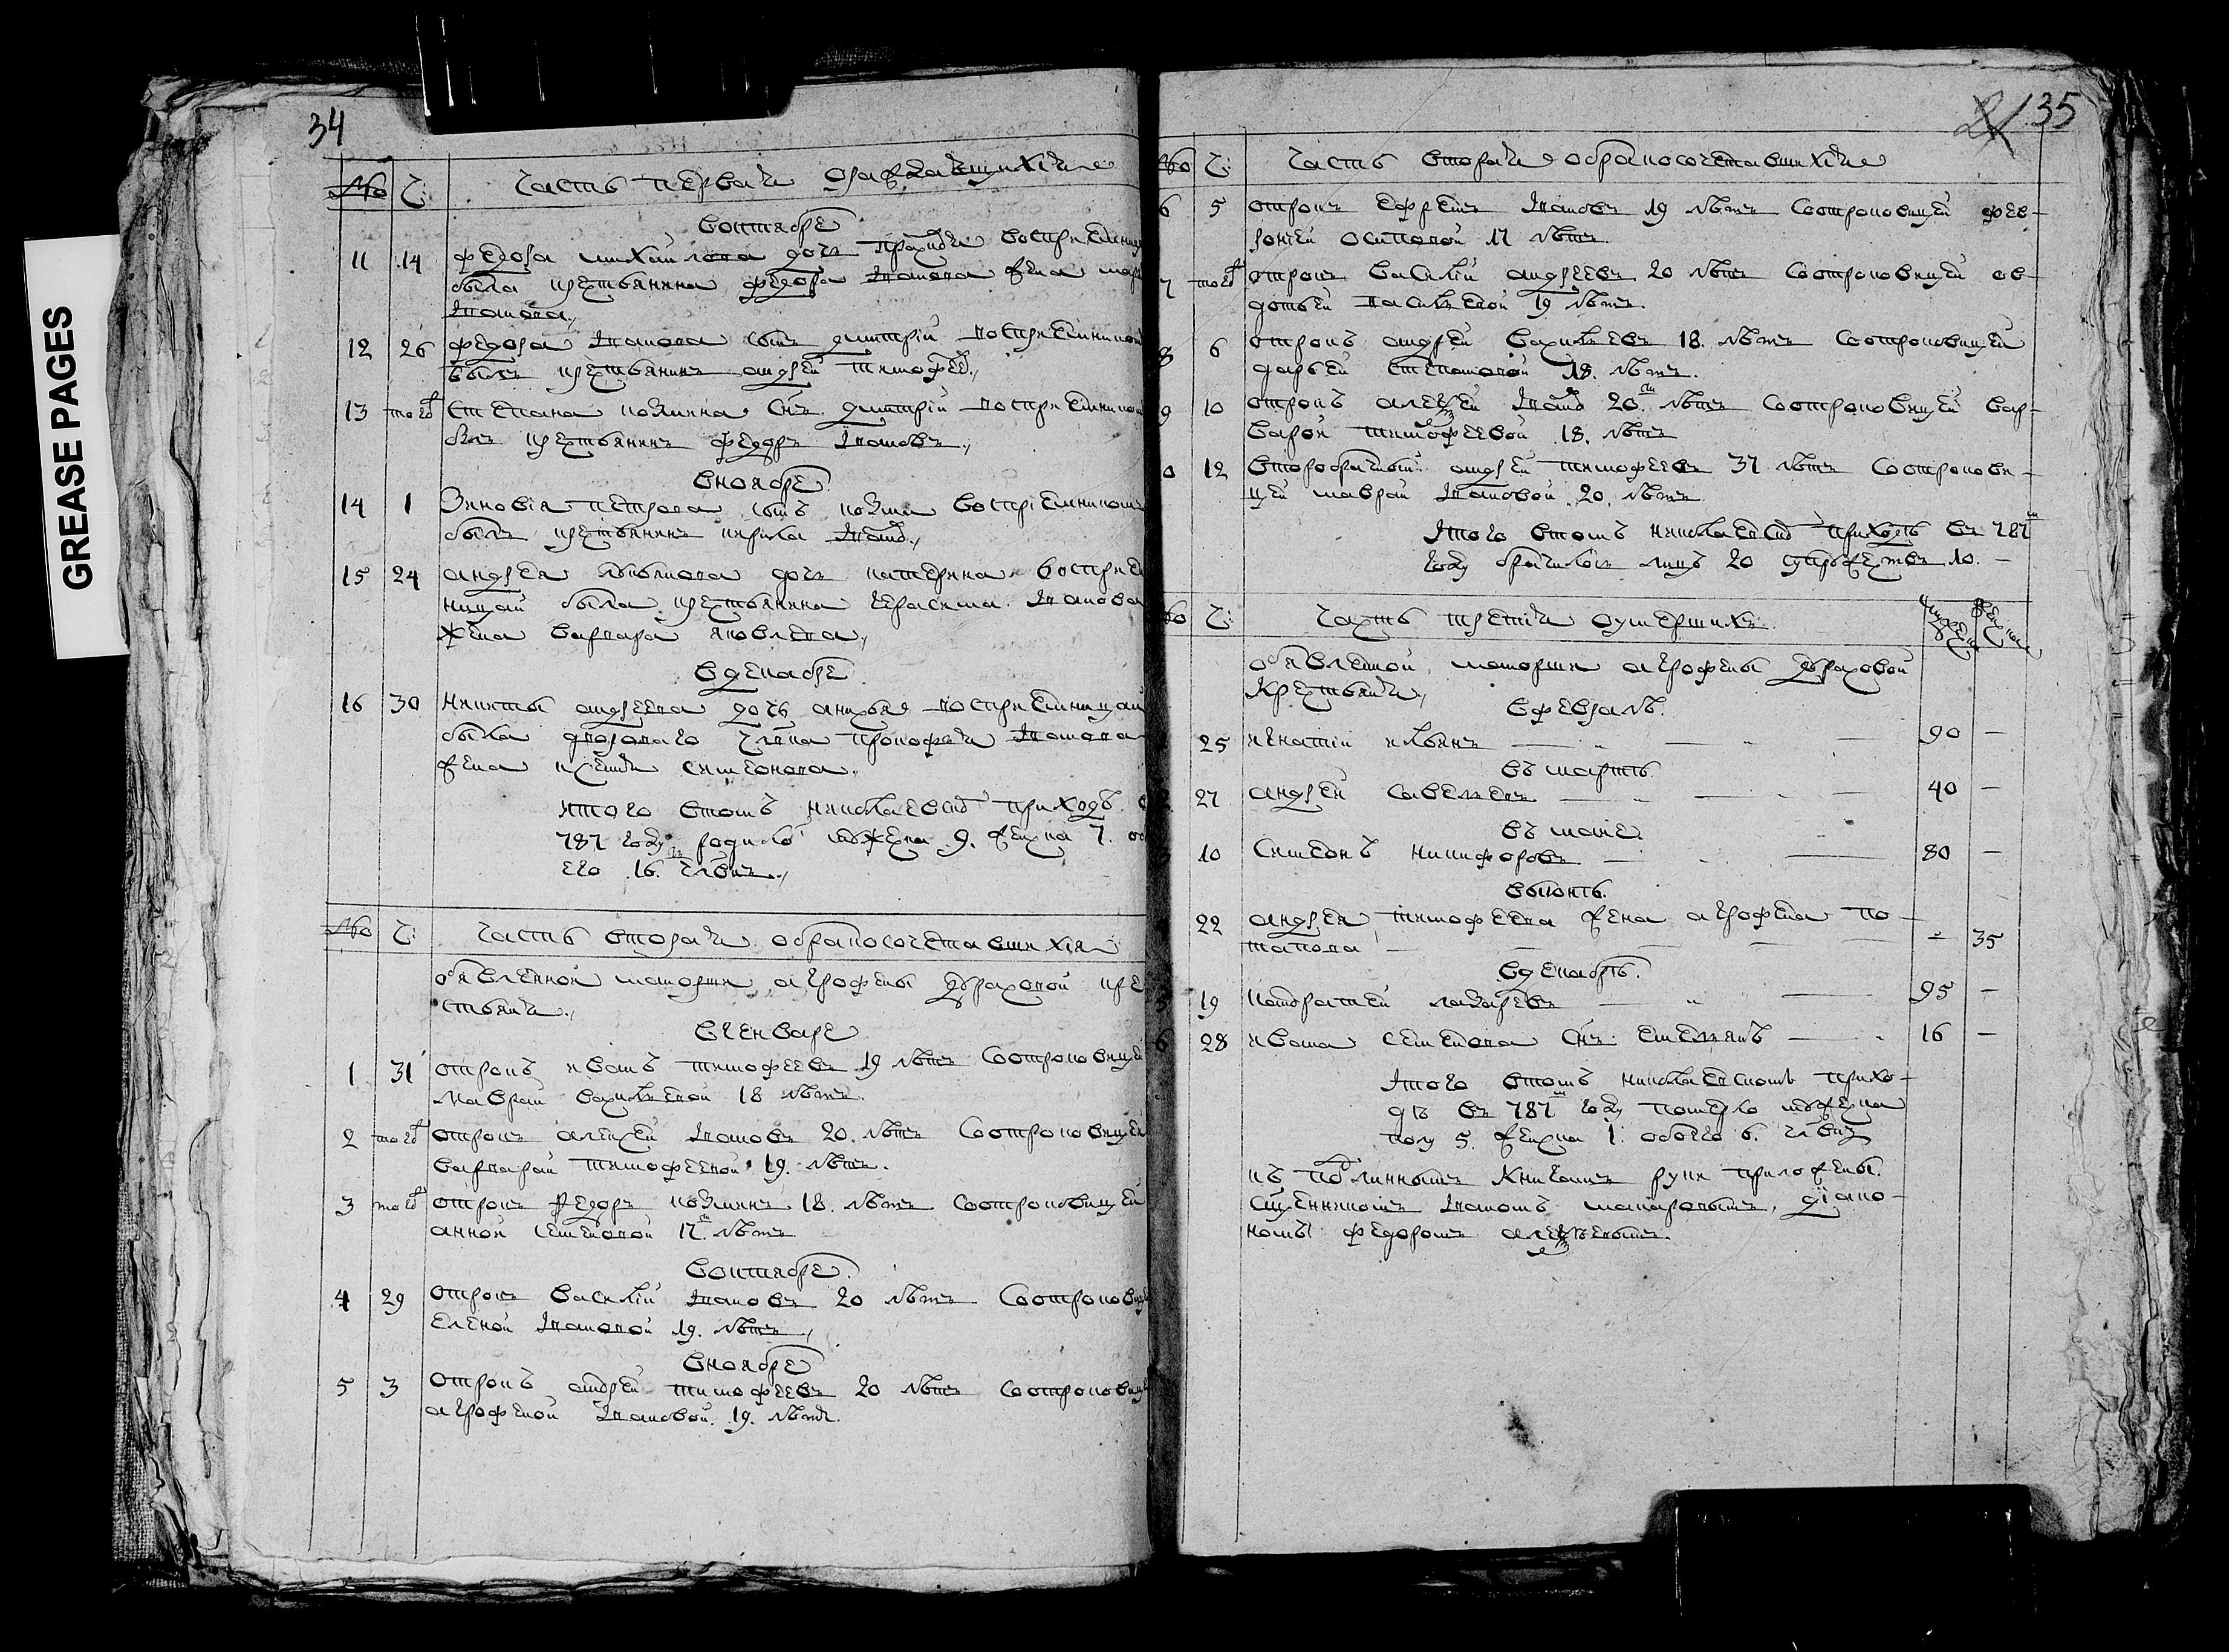 GREASE PAGES
34
№ Ч: Часть первая ораждающихся
воктябре
11 14 федора михайлова дочь восприемницею
была крестьянина федора иванова жена
иванова,,
12 26 федора иванова сынъ димитрiй восприемникомъ
былъ крестьянинъ андрей тимофее,,
13 того степана козмина снъ димитрiй восприемникомъ
былъ крестьянинъ федоръ ивановъ,,
вноябре
14 1 Зиновiя петрова сынъ козма воспрiемникомъ
былъ крестьянинъ кирила иванов,,
15 24 андрея дочь катерина воспрiем
ницай была крестьянина герасима иванова
жена варвара яковлева,,
вдекабре
16 30 никиты андреева дочь анисья восприемницай
была дворового члена прокофья иванова
жена ксения симионова,,
итого втомъ николаевско приходъ в
787 году родилось мужеска 9. женска 7. обо
его 16. člвкъ,,
№ Ч: Часть вторая обракосочетавшихся
объявленной маiорши агрофены храховой кре
стьяня,,
вгенваре
1 31 отрокъ иванъ тимофеевъ 19 лѣтъ соотроковицей
маврай васильевой 18 лѣтъ.
2 того отрокъ алексей ивановъ 20. лѣтъ соотроковицей
варварай тимофеевой 19. лѣтъ.
3 того отрокъ федоръ козминъ 18. лѣтъ соотроковицей
анной семеновой 17. лѣтъ
воктябре.
4 29 отрокъ василiй ивановъ 20 лѣтъ соотроковице
еленой ивановой 19. лѣтъ,,
вноябре
5 3 отрокъ андрей тимофеевъ 20 лѣтъ соотроковице
агрофеной ивановой. 19. лѣтъ.
135
№ Ч: Часть вторая обракосочетавшихся
6 5 отрокъ ефремъ ивановъ 19 лѣтъ соотроковицей фев-
ронiей осиповой 17 лѣтъ.
7 того отрокъ василiй андреевъ 20 лѣтъ соотроковицей ов-
дотьей васильевой 19 лѣтъ.
8 6 отрокъ андрей васильевъ 18. лѣтъ соотроковицей
дарьей степановой 18. лѣтъ.
9 10 отрокъ алексей иванов 20. лѣтъ соотроковицей вар-
варой тимофеевой 18. лѣтъ
0 12 второбрачный андрей тимофеевъ 37 лѣтъ соотрокови-
цей маврай ивановой 20. лѣтъ.
итого втомъ николаевско приходъ въ 787
году брачилось лицъ 20 супружествъ 10. -
№ Ч: Часть третiя оумершихъ.
объявленной маiорши агрофены храховой
крестьяня,,
вфевралъ.
25 игнатiй ильинъ 90 —
въ мартъ.
27 андрей савельевъ 40 —
въ маiе.
10 симеонъ никифоровъ 80 —
выюнъ.
22 андрея тимофеева жена агрофена по-
тапова — 35
вдекабръ.
19 кондратей лазаревъ 95 —
6 28 ивана семенова снъ: емельянъ 16 —
итого втомъ николаевскомъ прихо-
дъ въ 787 году померло мужеска
полу 5. женска 1. обоего 6. члвкъ
къ подлиннымъ книгамъ руки приложены.
священникомъ иваномъ макаровымъ, дiако-
номъ федоромъ алексѣевымъ.